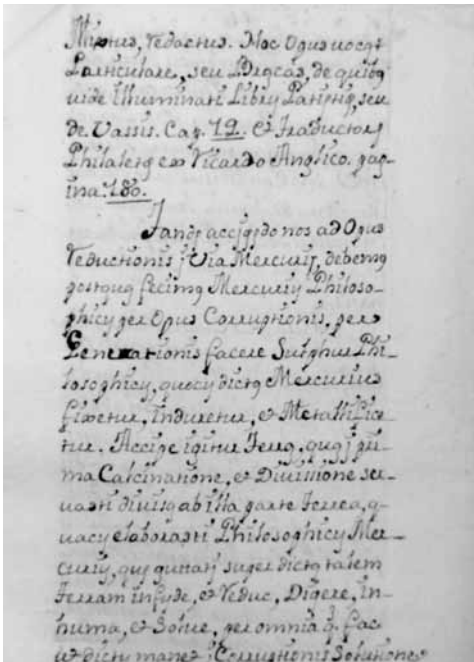 Mixtus, redactus. Hoc Opus vocat
Particulare, seu de quibq
vide Illuminati Libry seu
de Vassis. Cap. 12. et Traductory
Philaletq ex Ricardo Anglico. pag-
ina. 180.
accipido nos ad Opus
Reductionis Via Mercurij, debemq
postquq fecimq Mercuriy Philoso-
phicy per Opus Corruptionis, per
Generationis facere Sulphur Phi-
losophicy, quocy dictq Mercurius
fixetur, induretur, et Metallifice-
tur. Accipe igitur Terrq, quq j pri-
ma Calcinatione, et Divissione ser-
vasti divisq ab illa parte Terrea, q-
uacy elaborasti Philosophicy Mer-
curiy, quy super dictq talem
Terram infude, et Reduc, Digere, In-
huma, et Solve, per omnia q. fac
ut dicty manet j Corruptionis Solutione